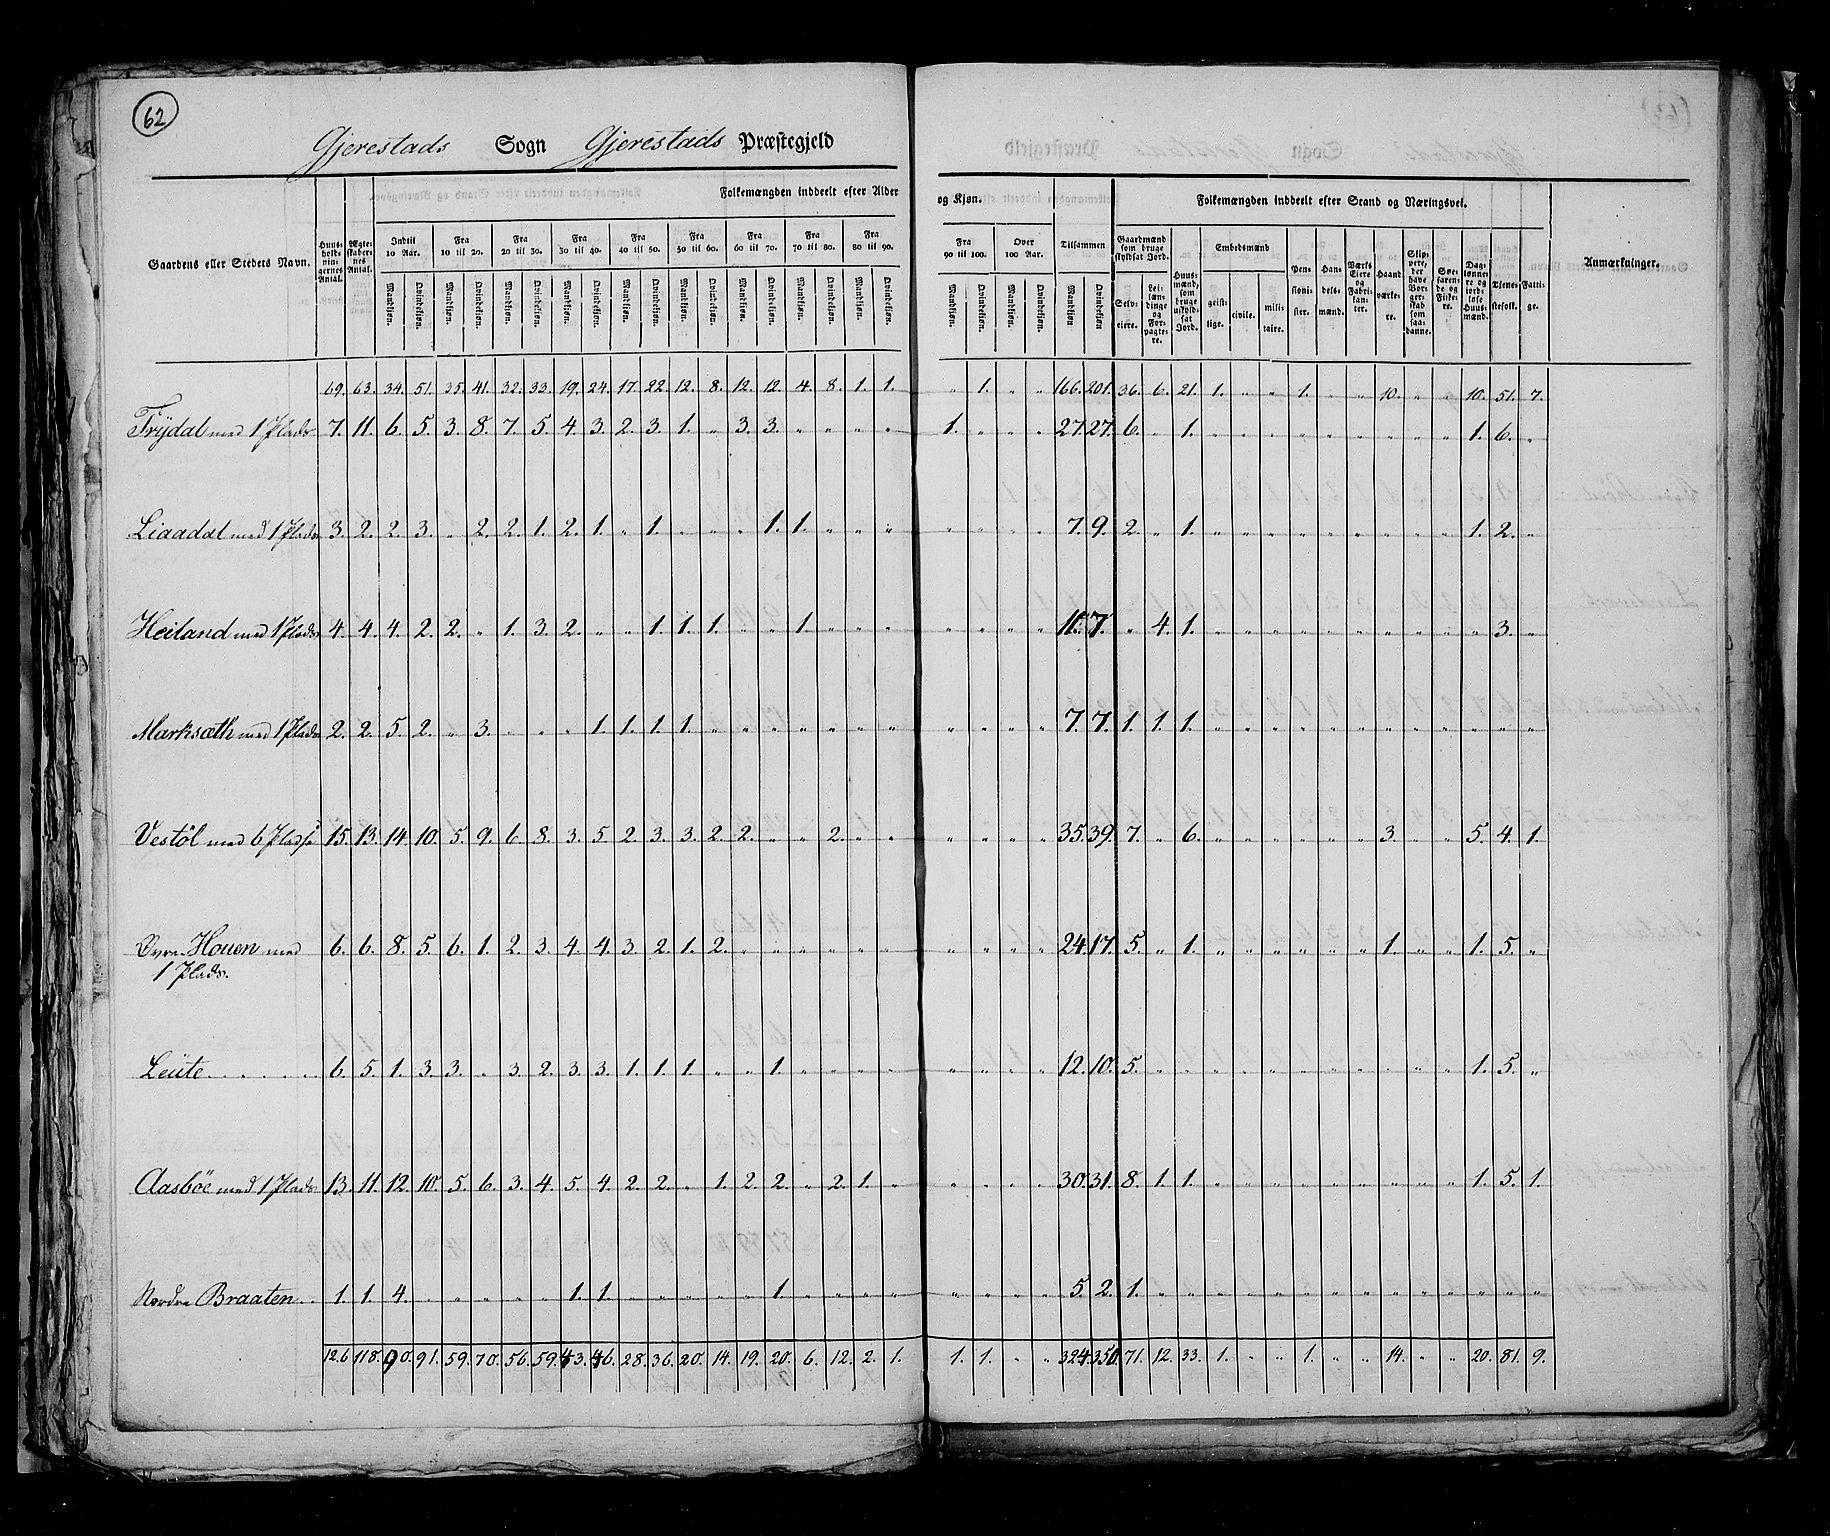 62
Gjerestads Sogn Gjerestads Præstegjeld
Gaardens eller Steders Navn. Huusholdningernes Antal. Ægteskabernes Antal. Folkemængden inddeelt efter Alder og Kjøn. Tilsammen Folkemængden inddeelt efter Stand og Næringsvei. Anmærkninger.
Indtil 10 Aar. Fra 10 til 20. Fra 20 til 30. Fra 30 til 40. Fra 40 til 50. Fra 50 til 60. Fra 60 til 70. Fra 70 til 80. Fra 80 til 90. Fra 90 til 100. Over 100 Aar.
Mandkjøn. Qvindekjøn. Mandkjøn. Qvindekjøn. Mandkjøn. Qvindekjøn. Mandkjøn. Qvindekjøn. Mandkjøn. Qvindekjøn. Mandkjøn. Qvindekjøn. Mandkjøn. Qvindekjøn. Mandkjøn. Qvindekjøn. Mandkjøn. Qvindekjøn. Mandkjøn. Qvindekjøn. Mandkjøn. Qvindekjøn. Mandkjøn Qvindekjøn
Gaardmænd som bruge skyldsat Jord. Selveiere. Leilændinge og Forpagtere. Huusmænd, som bruge uskyldsat Jord. Embedsmænd geistlige. civile. militaire. Pensionister. Handelsmænd. Værks Eiere og Fabrikanter. Haandværkere. Skippere, der have Borgerskab som saadanne. Søefarende og Fiskere. Daglønnere og jordløse Huusmænd. Tienestefolk. Fattige.
69. 63. 34. 51. 35. 41. 32. 33. 19. 24. 17. 22. 12. 8. 12. 12. 4. 8. 1. 1. " 1. " " 166. 201. 36. 6. 21. 1. " " 1. " " 10. " " 10. 51. 7.
Trydal med 1 Plads 7. 11. 6. 5. 3. 8. 7. 5. 4. 3. 2. 3. 1. " 3. 3. " " " " 1. " " " 27. 27. 6. " 1. " " " " " " " " " 1. 6. "
Liaadal med 1 Plads 3. 2. 2. 3. " 2. 2. 1. 2. 1. " 1. " " " 1. 1. " " " " " " " 7. 9. 2. " 1. " " " " " " " " " 1. 2. "
Heiland med 1 Plads 4. 4. 4. 2. 2. " 1. 3. 2. " " 1. 1. 1. " " 1. " " " " " " " 10. 7. " 4. 1. " " " " " " " " " " 3. "
Marksæth med 1 Plads 2. 2. 5 2. " 3. " " " 1. 1. 1. 1. " " " " " " " " " " " 7. 7. 1. 1. 1. " " " " " " " " " " " "
Vestöl med 6 Pladse 15. 13. 14. 10. 5. 9. 6. 8. 3. 5 2. 3. 3. 2. 2. " " 2. " " " " " " 35. 39. 7. " 6. " " " " " " 3. " " 5. 4. 1.
Øvre Houen med 6. 6. 8. 5. 6. 1. 2. 3. 4. 4. 3. 2. 1. 2. " " " " " " " " " " 24. 17. 5. " 1. " " " " " " 1. " " 1. 5. "
1 Plads.
Leüte . . . . . 6. 5. 1. 3. 3. " 3. 2. 3. 3. 1. 1. 1. " " 1. " " " " " " " " 12. 10. 5. " " " " " " " " " " " 1. 5. "
Aasböe med 1 Plads 13. 11. 12. 10. 5. 6. 3. 4. 5. 4. 2. 2. " 1. 2. 2. " 2. 1. " " " " " 30. 31. 8. 1. 1. " " " " " " " " " 1. 5. 1.
Nordre Braaten . . 1. 1. 4. " " " " " 1. 1. " " " " " 1. " " " " " " " " 5. 2. 1. " " " " " " " " " " " " " "
126. 118. 90. 91. 59. 70. 56. 59. 43. 46. 28. 36. 20. 14. 19. 20. 6. 12. 2. 1. 1. 1. " " 324. 350. 71. 12. 33. 1. " " 1. " " 14. " " 20. 81. 9.